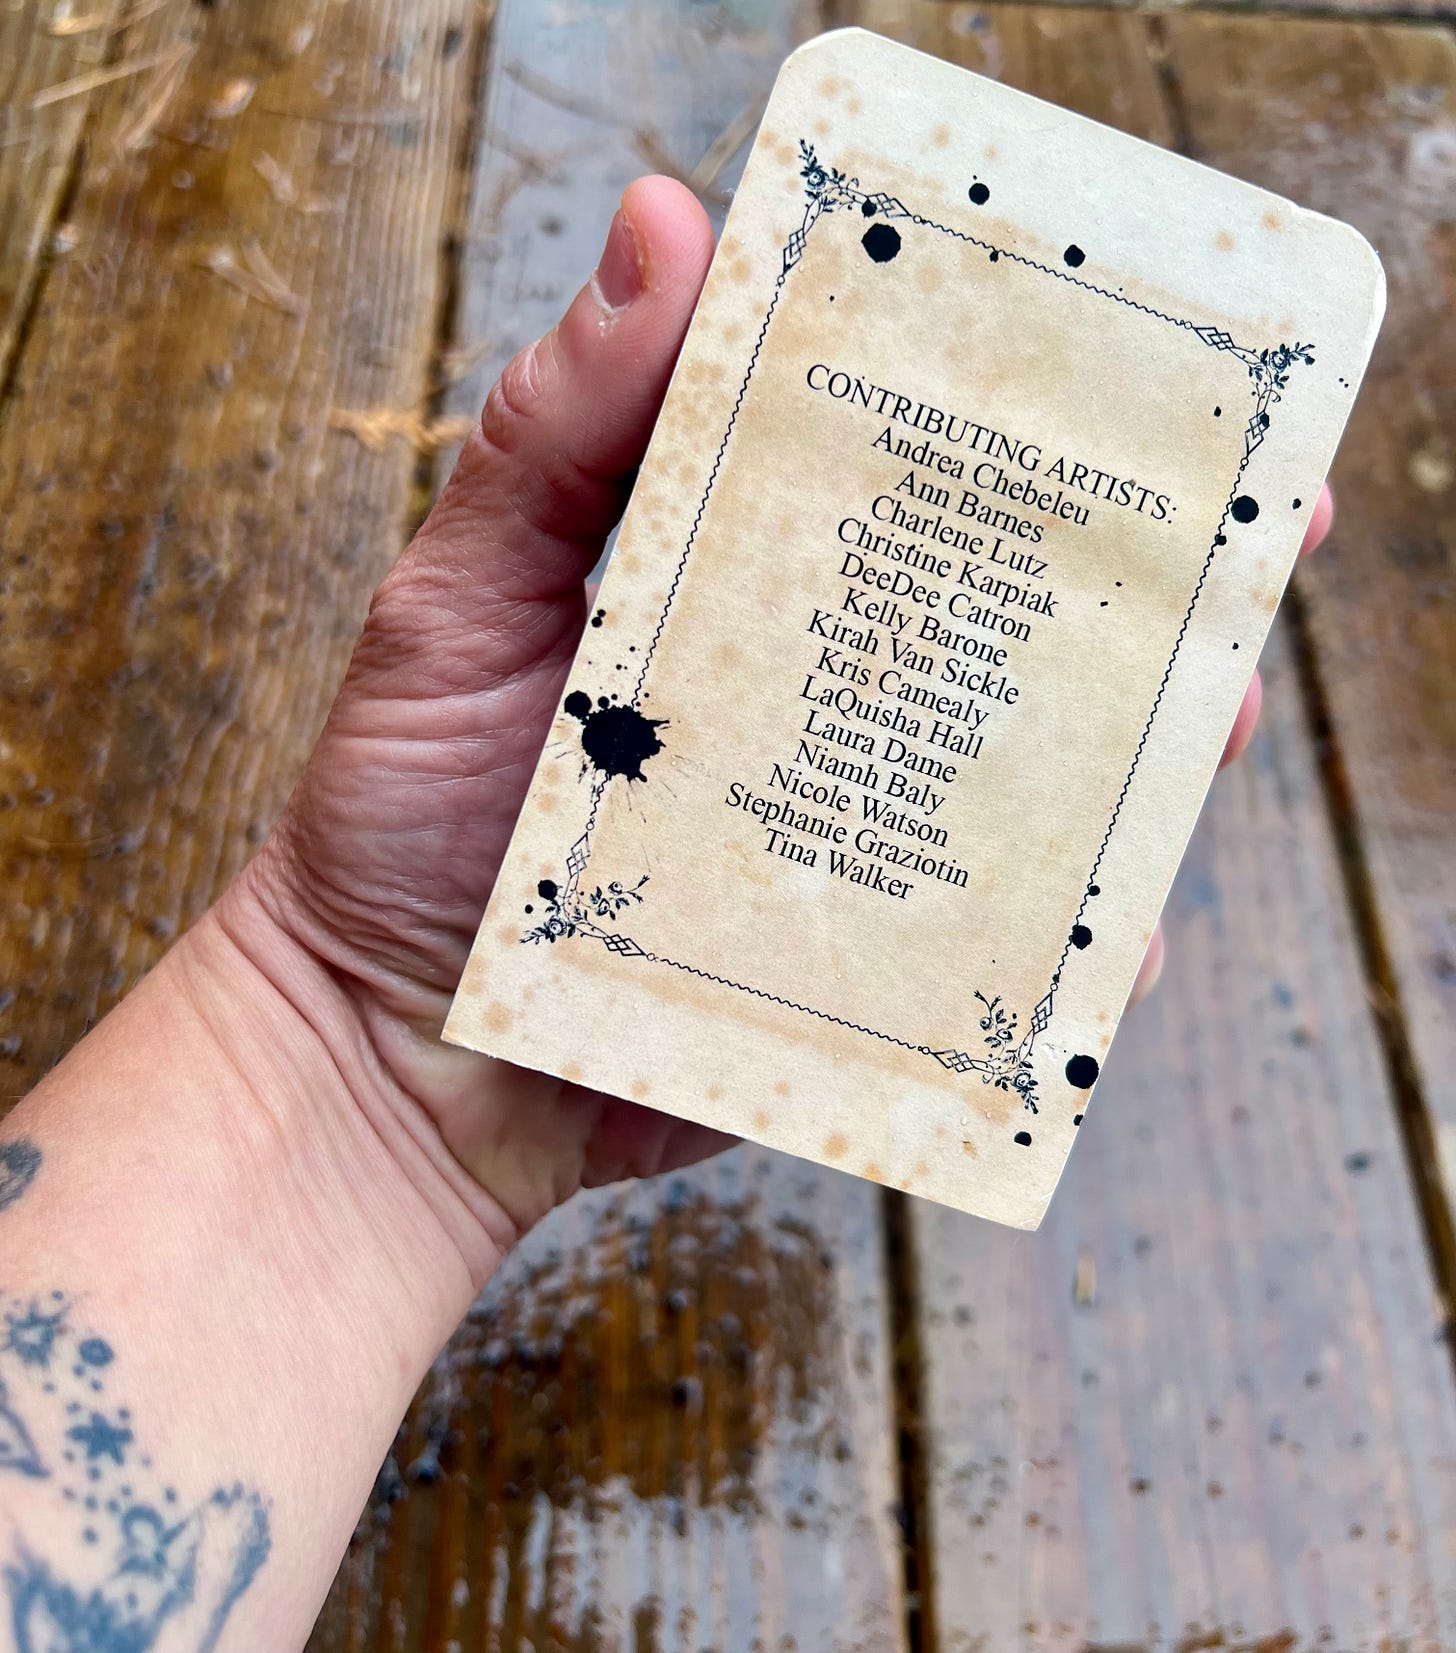 CONTRIBUTING ARTISTS:
Andrea Chebeleu
Ann Barnes
Charlene Lutz
Christine Karpiak
DeeDee Catron
Kelly Barone
Kirah Van Sickle
Kris Camealy
LaQuisha Hall
Laura Dame
Niamh Baly
Nicole Watson
Stephanie Graziotin
Tina Walker